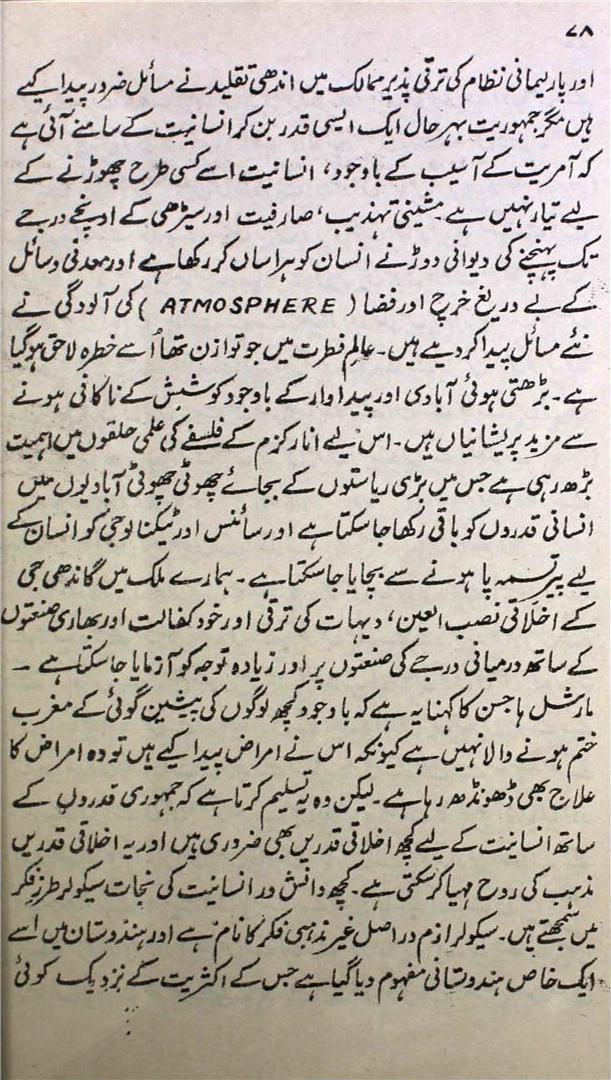 ۷۸
اور پارلیمانی نظام کی ترقی پذیر ممالک میں اندھی تقلید نے مسائل ضرور پیدا کیے
ہیں مگر جمہوریت بہرحال ایک ایسی قدر بن کر انسانیت کے سامنے آئی ہے
کہ آمریت کے آسیب کے باوجود، انسانیت اسے کسی طرح چھوڑنے کے
لیے تیار نہیں ہے۔ مشینی تہذیب، صارفیت اور سیڑھی کے اونچے درجے
تک پہنچنے کی دیوانی دوڑ نے انسان کو ہراساں کر رکھا ہے اور معدنی وسائل
کے بے دریغ خرچ اور فضا (ATMOSPHERE) کی آلودگی نے
نئے مسائل پیدا کر دیے ہیں۔ عالمِ فطرت میں جو توازن تھا اُسے خطرہ لاحق ہوگیا
ہے۔ بڑھتی ہوئی آبادی اور پیداوار کے باوجود کوشش کے ناکافی ہونے
سے مزید پریشانیاں ہیں۔ اس لیے انارکزم کے فلسفے کی علمی حلقوں میں اہمیت
بڑھ رہی ہے جس میں بڑی ریاستوں کے بجائے چھوٹی چھوٹی آبادیوں میں
انسانی قدروں کو باقی رکھا جاسکتا ہے اور سائنس اور ٹیکنالوجی کو انسان کے
لیے پیر تسمہ پا ہونے سے بچایا جاسکتا ہے۔ ہمارے ملک میں گاندھی جی
کے اخلاقی نصب العین، دیہات کی ترقی اور خود کفالت اور بھاری صنعتوں
کے ساتھ درمیانی درجے کی صنعتوں پر اور زیادہ توجہ کو آزمایا جاسکتا ہے۔
مارشل ہاجسن کا کہنا یہ ہے کہ باوجود کچھ لوگوں کی پیشین گوئی کے مغرب
ختم ہونے والا نہیں ہے کیونکہ اس نے امراض پیدا کیے ہیں تو وہ امراض کا
علاج بھی ڈھونڈھ رہا ہے۔ لیکن وہ یہ تسلیم کرتا ہے کہ جمہوری قدروں کے
ساتھ انسانیت کے لیے کچھ اخلاقی قدریں بھی ضروری ہیں اور یہ اخلاقی قدریں
مذہب کی روح مہیا کرسکتی ہے۔ کچھ دانش ور انسانیت کی نجات سیکولر طرزِ فکر
میں سمجھتے ہیں۔ سیکولرازم دراصل غیر مذہبی فکر کا نام ہے اور ہندوستان میں اسے
ایک خاص ہندوستانی مفہوم دیا گیا ہے جس کے اکثریت کے نزدیک کوئی